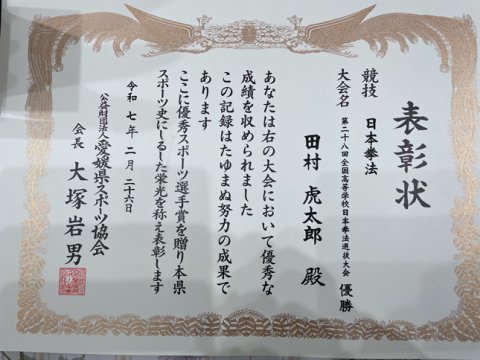 表彰状
競技 日本拳法
大会名 第二十八回全国高等学校日本拳法選抜大会 優勝
田村 虎太郎 殿
あなたは右の大会において優秀な
成績を収められました
この記録はたゆまぬ努力の成果で
あります
ここに優秀スポーツ選手賞を贈り本県
スポーツ史にしるした栄光を称え表彰します
令和七年二月二十六日
公益財団法人愛媛県スポーツ協会
会長 大塚岩男